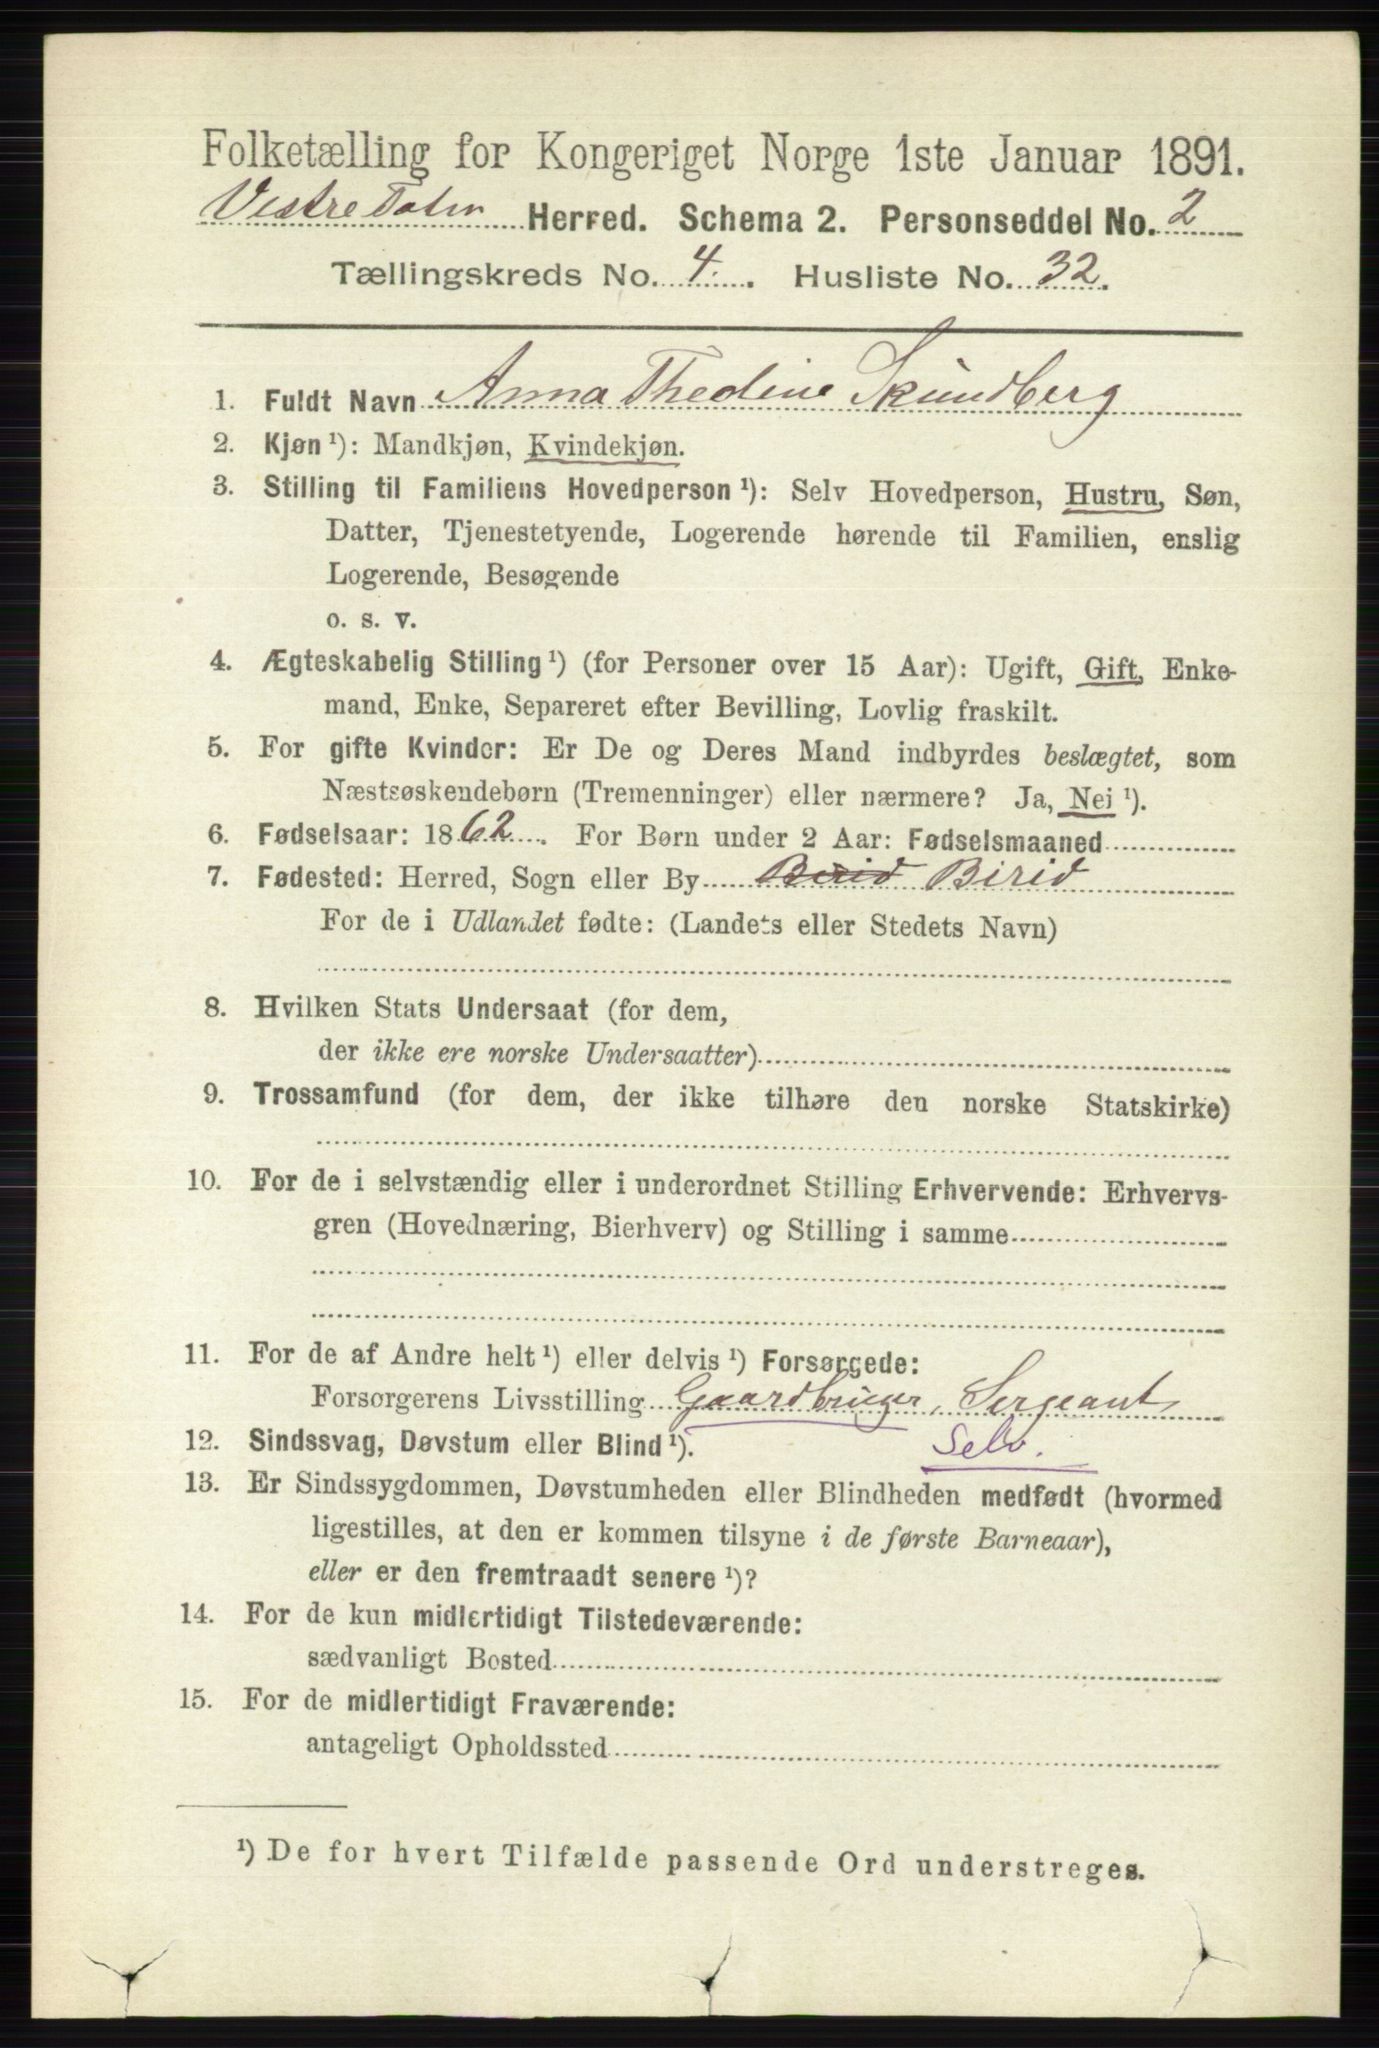 Folketælling for Kongeriget Norge 1ste Januar 1891.
Vestre Toten Herred. Schema 2. Personseddel No. 2
Tællingskreds No. 4. Husliste No. 32.
1. Fuldt Navn Anna Theoline Skundberg
2. Kjøn ¹): Mandkjøn, Kvindekjøn.
3. Stilling til Familiens Hovedperson ¹): Selv Hovedperson, Hustru, Søn,
Datter, Tjenestetyende, Logerende hørende til Familien, enslig
Logerende, Besøgende
o. s. v.
4. Ægteskabelig Stilling ¹) (for Personer over 15 Aar): Ugift, Gift, Enke-
mand, Enke, Separeret efter Bevilling, Lovlig fraskilt.
5. For gifte Kvinder: Er De og Deres Mand indbyrdes beslægtet, som
Næstsøskendebørn (Tremenninger) eller nærmere? Ja, Nei ¹).
6. Fødselsaar: 1862. For Børn under 2 Aar: Fødselsmaaned
7. Fødested: Herred, Sogn eller By Birid Birid
For de i Udlandet fødte: (Landets eller Stedets Navn)
8. Hvilken Stats Undersaat (for dem,
der ikke ere norske Undersaatter)
9. Trossamfund (for dem, der ikke tilhøre den norske Statskirke)
10. For de i selvstændig eller i underordnet Stilling Erhvervende: Erhvervs-
gren (Hovednæring, Bierhverv) og Stilling i samme
11. For de af Andre helt ¹) eller delvis ¹) Forsørgede:
Forsørgerens Livsstilling Gaardbruger, Sergeant
12. Sindssvag, Døvstum eller Blind ¹). Selv.
13. Er Sindssygdommen, Døvstumheden eller Blindheden medfødt (hvormed
ligestilles, at den er kommen tilsyne i de første Barneaar),
eller er den fremtraadt senere ¹)?
14. For de kun midlertidigt Tilstedeværende:
sædvanligt Bosted
15. For de midlertidigt Fraværende:
antageligt Opholdssted
¹) De for hvert Tilfælde passende Ord understreges.